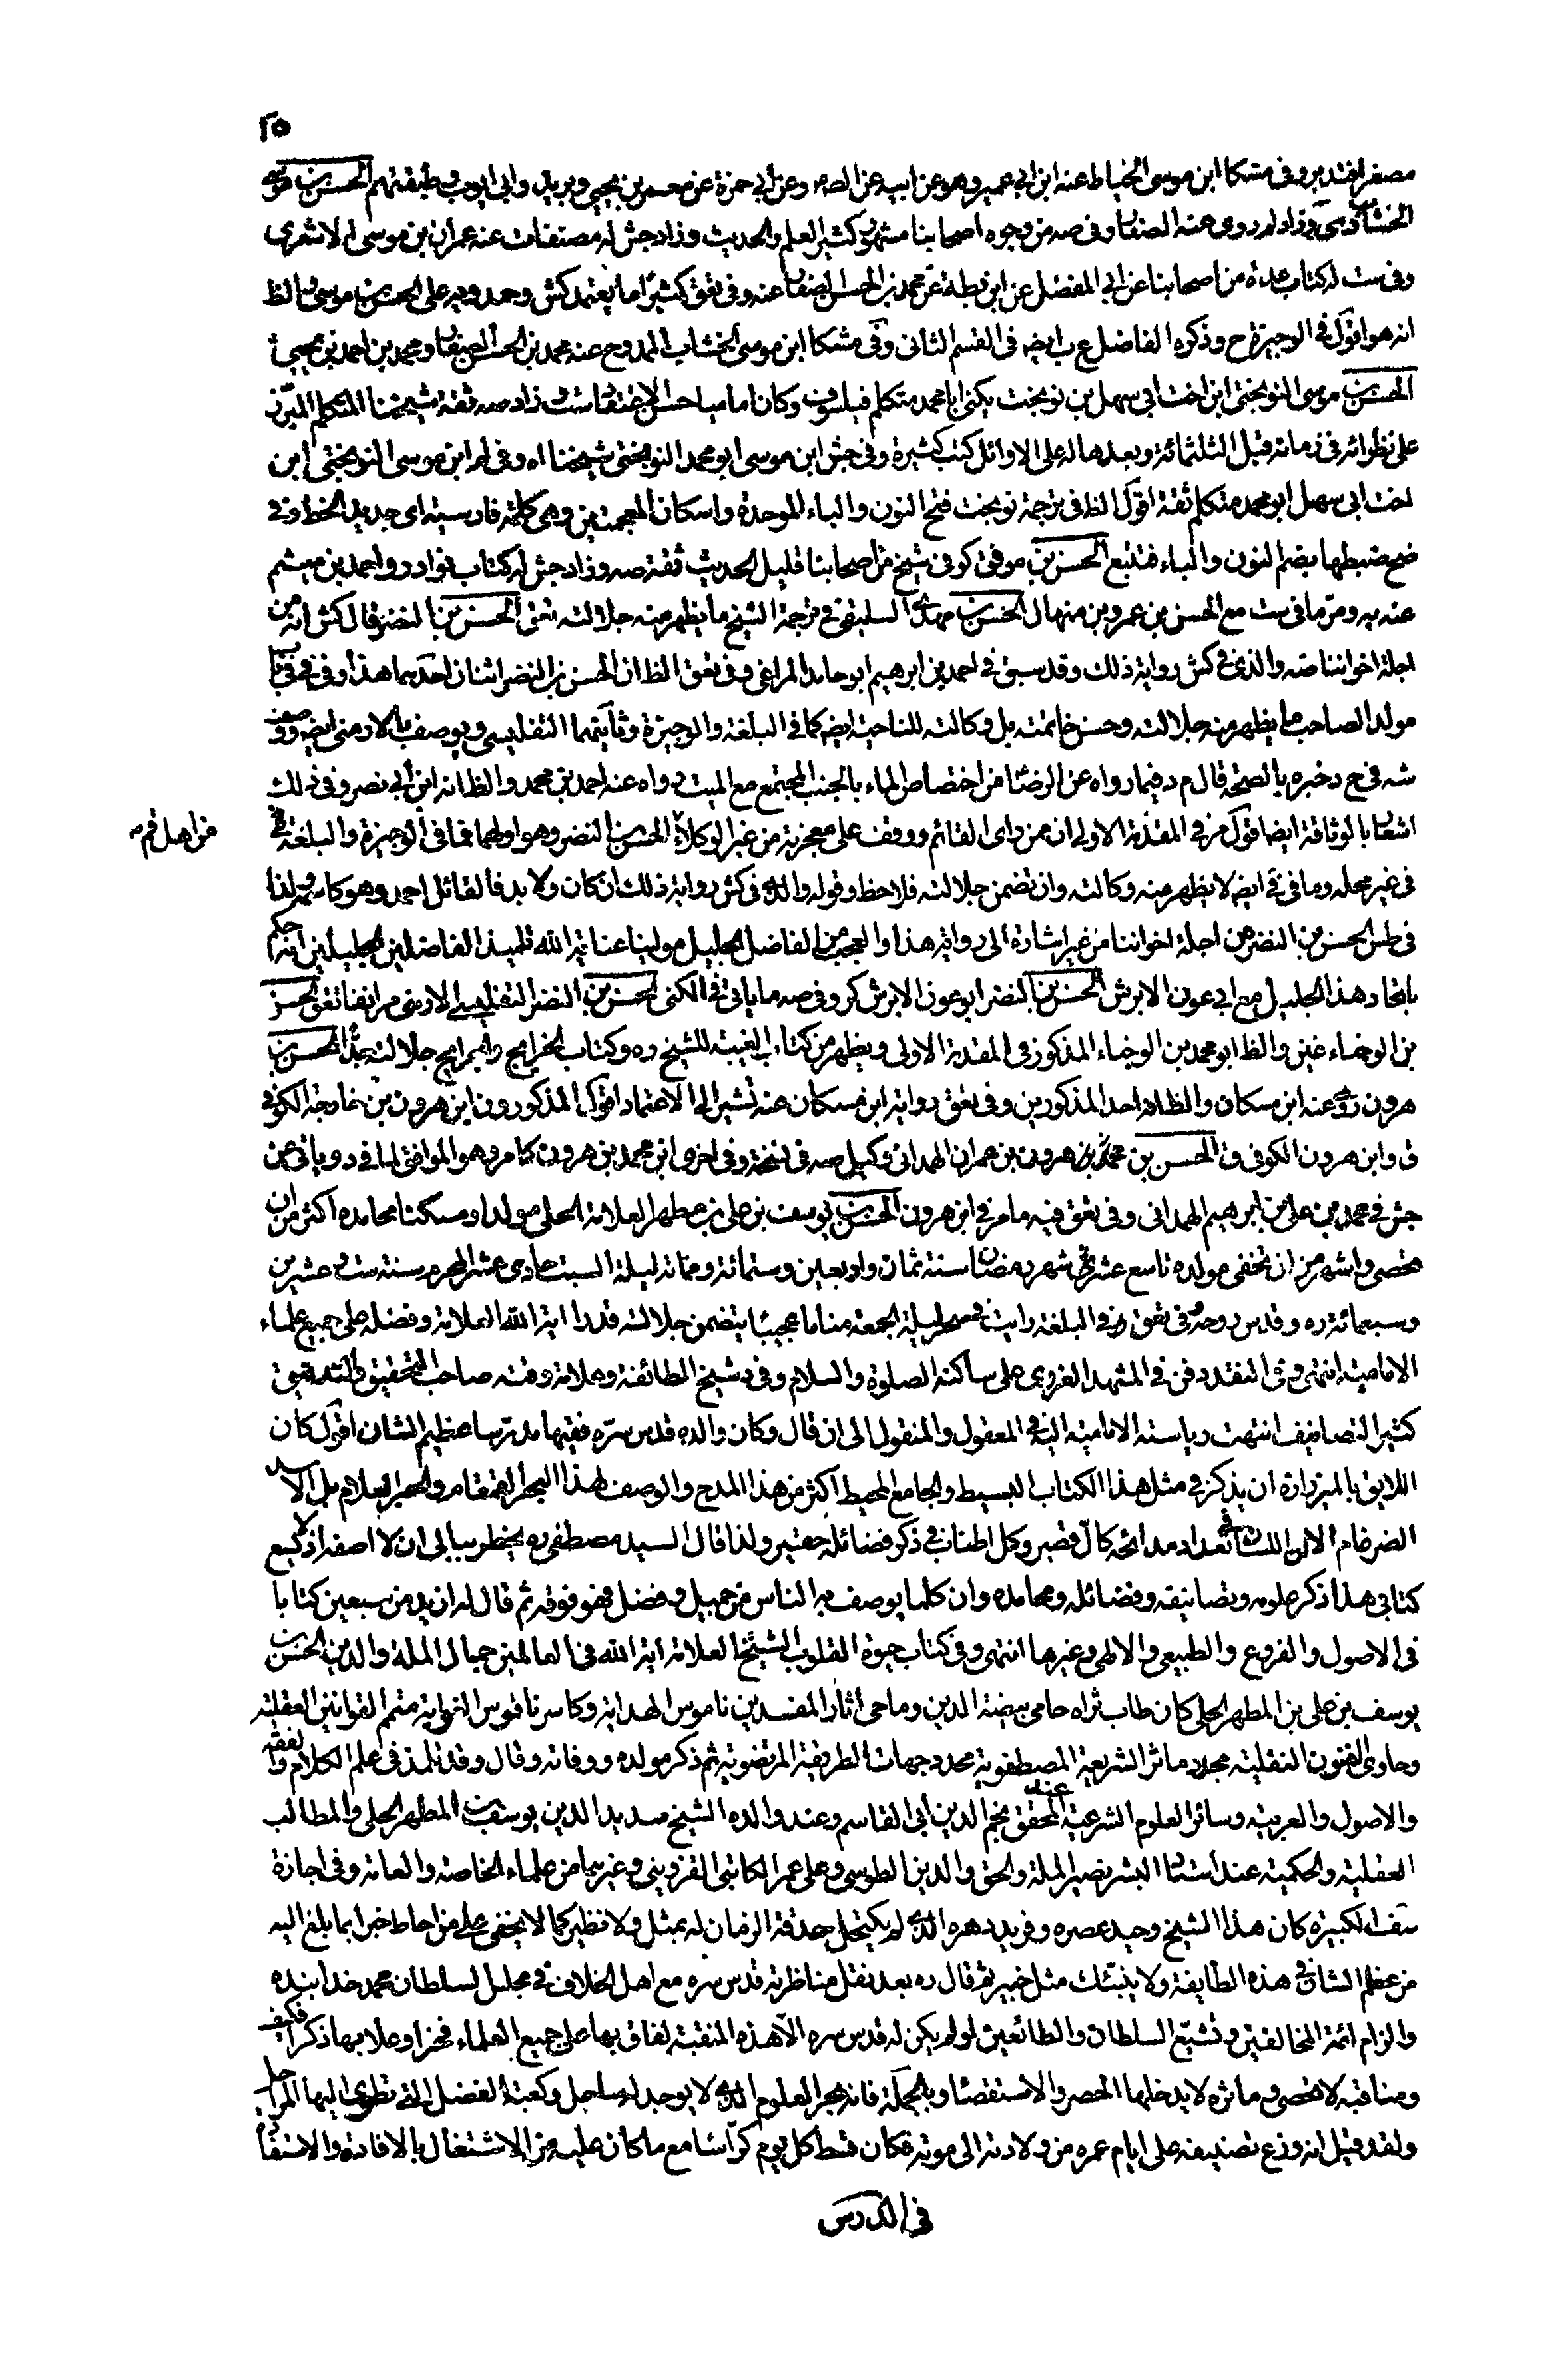 ٢٥
مصغرا فتدبر وفى مشكا ابن موسى الخياط عنه ابن ابى عمير وهو عن ابيه عن الصم وعن ابى حمزة عن معمر بن يحيى وبريد وابى ايوب وطبقتهم الحسن بن موسى
الخشاب زاد لم روى عنه الصفار وفى صه من وجوه اصحابنا مشهور كثير العلم والحديث وزاد جش له مصنفات عنه عمران بن موسى الاشعرى
وفى ست له كتاب عدة من اصحابنا عن ابى المفضل عن ابن بطة عن محمد بن الحسن الصفار عنه وفى تعق كثيرا ما يعتمد كش وحمدويه على الحسن بن موسى والظ
انه هو اقول فى الوجيزة ح وذكره الفاضل عب ايضه فى القسم الثانى وفى مشكا ابن موسى الخشاب الممدوح عنه محمد بن الحسن الصفار ومحمد بن احمد بن يحيى
الحسن بن موسى النوبختى ابن اخت ابى سهل بن نوبخت يكنى ابا محمد متكلم فيلسوف وكان اماميا حسن الاعتقاد ست وزاد صه ثقة شيخنا المتكلم المبرز
على نظرائه فى زمانه قبل الثلثمائة وبعدها له على الاوائل كتب كثيرة وفى جش ابن موسى ابو محمد النوبختى شيخنا اه وفى لم ابن موسى النوبختى ابن
اخت ابى سهل ابو محمد متكلم ثقة اقول الظ فى ترجمة نوبخت فتح النون والباء الموحدة واسكان المعجمتين وهى كلمة فارسية اى جديد الحظ وفى
ضح ضبطها بضم النون والباء فتتبع الحسن بن موفق كوفى شيخ من اصحابنا قليل الحديث ثقة صه وزاد جش له كتاب نوادر واحمد بن ميثم
عنه به ومر ما فى ست مع الحسن بن عمرو بن منهال الحسن بن مهدى السليقى فى ترجمة الشيخ ما يظهر منه جلالته تعق الحسن بن النضر قال كش انه من
اجلة اخواننا صه والذى فى كش رواية ذلك وقد سبق فى احمد بن ابرهيم ابو حامد المراغى وفى تعق الظ ان الحسن بن النضر اثنان احدهما هذا وفى فى باب
مولد الصاحب ما يظهر منه جلالته وحسن خاتمته بل وكالته للناحية ايضه كما فى البلغة والوجيزة وثانيهما التفليسى ويوصف بالارمنى ايضه ووصف
شه فى ح خبره بالصحة قال م د فيما رواه عن الرضا من اختصاص الماء بالجنب المجتمع مع الميت رواه عنه احمد بن محمد والظ انه ابن ابى نصر وفى ذلك
اشعار بالوثاقة ايضا اقول مر فى المقدمة الاولى ان ممن راى القائم ووقف على معجزته من غير الوكلاء الحسن بن النضر وهو اولهما فما فى الوجيزة والبلغة
من اهل قم
فى غير محله وما فى فى ايضه لا يظهر منه وكالته وان تضمن جلالته فلاحظ وقوله والذى فى كش رواية ذلك ان كان ولا بد فالقائل احمد وهو كاسمه ولذا
فى طس الحسن بن النضر من اجلة اخواننا من غير اشارة الى رواية هذا والعجب من الفاضل الجليل مولينا عناية الله تلميذ الفاضلين الجليلين انه حكم
باتحاد هذا الجليل مع ابى عون الابرش الحسن بن النضر ابو عون الابرش كر وفى صه ما ياتى فى الكنى الحسن بن النضر التفليسى الارمنى مر انفا تعق الحسن
بن الوجناء غيبن والظ ابو محمد بن الوجناء المذكور فى المقدمة الاولى ويظهر من كتاب الغيبة للشيخ ره وكتاب الخرايج والجرايح جلالته جدا الحسن بن
هرون روى عنه ابن مسكان والظاهر احد المذكورين وفى تعق رواية ابن مسكان عنه تشير الى الاعتماد اقول المذكورون ابن هرون بن خارجة الكوفى
ق وابن هرون الكوفى ق الحسن بن محمد بن هرون بن عمران الهمدانى وكيل صه فى نسخة وفى اخرى ابن محمد بن هرون كما مر وهو الموافق لما فى د وياتى عن
جش فى محمد بن على بن ابرهيم الهمدانى وفى تعق فيه ما مر فى ابن هرون الحسن بن يوسف بن على بن مطهر العلامة الحلى مولدا ومسكنا محامده اكثر من ان
تحصى واشهر من ان تخفى مولده تاسع عشرى شهر رمضان سنة ثمان واربعين وستمائة ومماته ليلة السبت حادى عشر المحرم سنة ست وعشرين
وسبعمائة ره وقدس روحه وفى تعق فى البلغة رايت فى سحر ليلة الجمعة مناما عجيبا يتضمن جلالة قدر اية الله العلامة وفضله على جميع علماء
الامامية انتهى وفى النقد دفن فى المشهد الغروى على ساكنه الصلوة والسلام وفى د شيخ الطائفة وعلامة وقته صاحب التحقيق والتدقيق
كثير التصانيف انتهت رياسة الامامية اليه فى المعقول والمنقول الى ان قال وكان والده قدس سره فقيها مدرسا عظيم الشان اقول كان
اللايق بالميرزا ره ان يذكر فى مثل هذا الكتاب البسيط والجامع المحيط اكثر من هذا المدح والوصف لهذا البحر القمقام والحبر العلام بل الاسد
الضرغام الا ان اللسان فى تعداد مدائحه كال قصير وكل اطناب فى ذكر فضائله حقير ولذا قال السيد مصطفى ره يخطر ببالى ان لا اصفه اذ لا يسع
كتابى هذا ذكر علومه وتصانيفه وفضائله ومحامده وان كلما يوصف به الناس من جميل وفضل فهو فوقه ثم قال له ازيد من سبعين كتابا
فى الاصول والفروع والطبيعى والالهى وغيرها انتهى وفى كتاب حيوة القلوب الشيخ العلامة اية الله فى العالمين جمال الملة والدين الحسن بن
يوسف بن على بن المطهر الحلى كان طاب ثراه حامى بيضة الدين وماحى اثار المفسدين ناموس الهداية وكاسر ناقوس الغواية متمم القوانين العقلية
وحاوى الفنون النقلية مجدد ماثر الشريعة المصطفوية محدد جهات الطريقة المرتضوية ثم ذكر مولده ووفاته وقال وقد تلمذ فى علم الكلام والفقه
والاصول والعربية وسائر العلوم الشرعية عند المحقق نجم الدين ابى القاسم وعند والده الشيخ سديد الدين يوسف بن المطهر الحلى والمطالب
العقلية والحكمية عند استاد البشر نصير الملة والحق والدين الطوسى وعلى عمر الكاتبى القزوينى وغيرهما من علماء الخاصة والعامة وفى اجازة
الكبيرة كان هذا الشيخ وحيد عصره وفريد دهره الذى لم يكتحل حدقة الزمان له بمثل ولا نظير كما لا يخفى على من احاط خبرا بما بلغ اليه
من عظم الشان فى هذه الطايفة ولا ينبئك مثل خبير ثم قال ره بعد نقل مناظرته قدس سره مع اهل الخلاف فى مجلس السلطان محمد خدا بنده
والزام ائمة المخالفين وتشيع السلطان والطائعين لو لم يكن له قدس سره الا هذه المنقبة لفاق بها على جميع العلماء فخرا وعلا بها ذكرا فكيف
ومناقبه لا تحصى وماثره لا يدخلها الحصر والاستقصاء وبالجملة فانه بحر العلوم الذى لا يوجد له ساحل وكعبة الفضل التى تطوى اليها المراحل
ولقد قيل انه وزع تصنيفه على ايام عمره من ولادته الى موته فكان قسط كل يوم كراسا مع ما كان عليه من الاشتغال بالافادة والاستفادة
فى الدرس